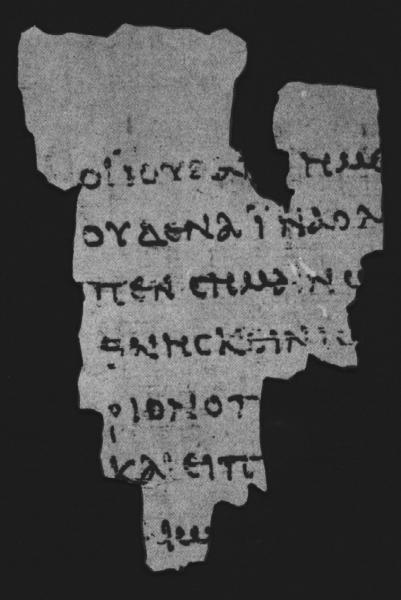 ΟΙΪΟΥΔΑΙ ΗΜΕ
ΟΥΔΕΝΑΪΝΑΟΛ
ΠΕΝϹΗΜΑΙΝΩ
ΘΝΗϹΚΕΙΝΙϹ
ΡΙΟΝΟΠ
ΚΑΙΕΙΠ